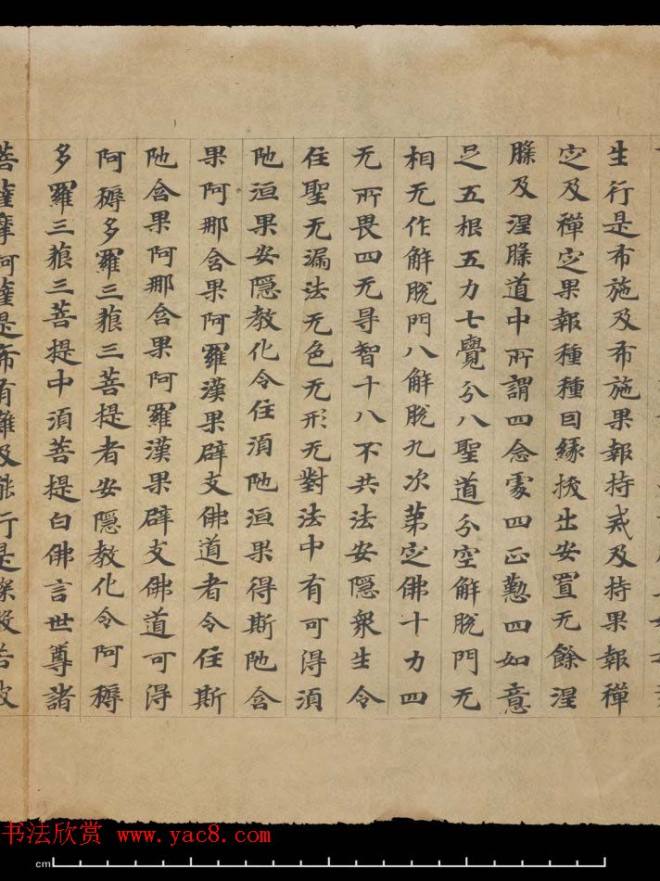 生行是布施及布施果報持戒及持果報禪
㝎及禪㝎果報種種曰縁拔出安置无餘涅
槃及涅槃道中所謂四念䖏四正懃四如意
足五根五力七覺分八聖道分空解脫門无
相无作解脫門八解脫九次第㝎佛十力四
无所畏四无㝵智十八不共法安隱衆生令
住聖无漏法无色无形无對法中有可得湏
陁洹果安隱教化令住湏陁洹果得斯陁含
果阿那含果阿羅漢果辟支佛道者令住斯
陁含果阿那含果阿羅漢果辟支佛道可得
阿耨多羅三藐三菩提者安隱教化令阿耨
多羅三藐三菩提中湏菩提白佛言世尊諸
菩薩摩訶薩是布有難及能行是深般若波
书法欣赏 www.yac8.com
cm